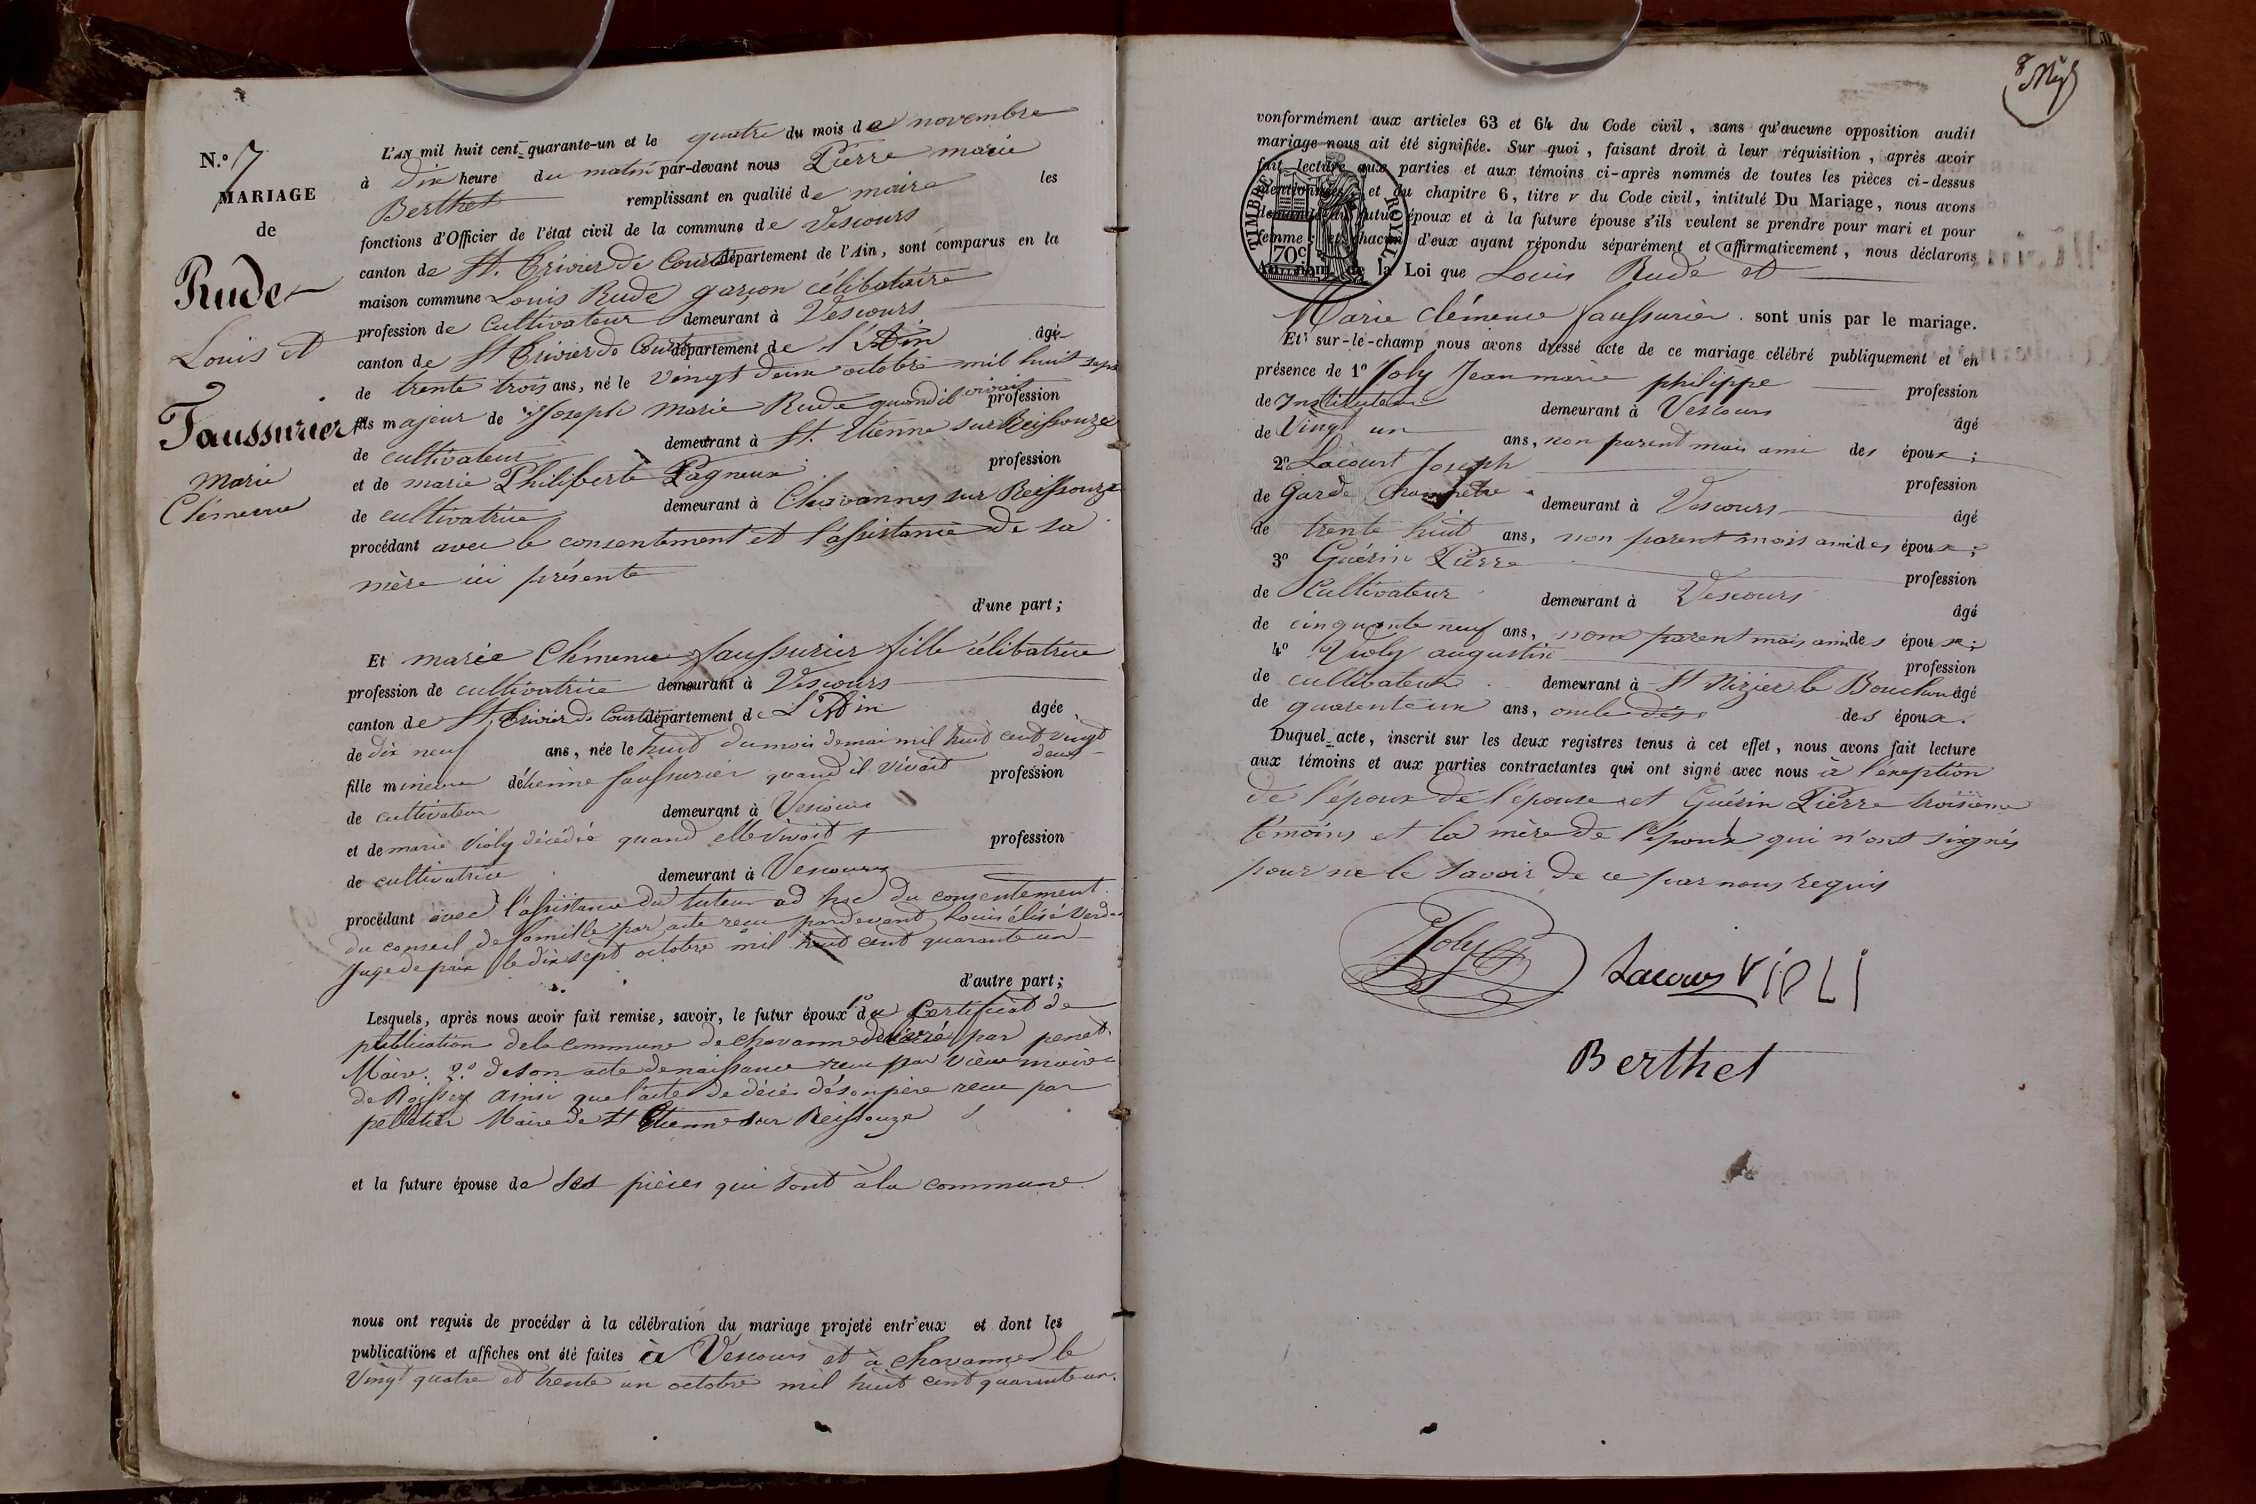 N.º 7
MARIAGE
de
Rude
Louis et
Faussurier
marie
Clémence
L'AN mil huit cent quarante-un et le quatre du mois de novembre
à dix heure du matin par-devant nous Pierre marie
Berthet remplissant en qualité de maire les
fonctions d'Officier de l'état civil de la commune de Vescours
canton de St. Trivier de Courtes département de l'Ain, sont comparus en la
maison commune Louis Rude garçon célibataire
profession de cultivateur demeurant à Vescours
canton de St Trivier de Courtes département de l'Ain âgé
de trente trois ans, né le vingt deux octobre mil huit sept
fils majeur de Joseph marie Rude quand il vivait profession
de cultivateur demeurant à St. Etienne sur Reissouze
et de marie Philiberte Pagneux profession
de cultivatrice demeurant à Chavannes sur Reissouze
procédant avec le consentement et l'assistance de sa
mère ici présente
d'une part;
Et marie Clémence faussurier fille célibatrice
profession de cultivatrice demeurant à Vescours
canton de St Trivier de Courtes département de L'Ain âgée
de dix neuf ans, née le huit du mois de mai mil huit cent vingt
deux
fille mineure d'étienne faussurier quand il vivait profession
de cultivateur demeurant à Vescours
et de marie Violy décédée quand elle vivait profession
de cultivatrice demeurant à Vescours
procédant avec l'assistance du tuteur ad hoc du consentement
du conseil de famille par acte reçu pardevant Louis élisé
Juge de paix le dix sept octobre mil huit cent quarante un
d'autre part;
Lesquels, après nous avoir fait remise, savoir, le futur époux 1º du Certificat de
publication de la commune de chavannes délivré par penet
Maire. 2º de son acte de naissance reçu par maire
de ainsi que l'acte de décès de son père reçu par
pelletier Maire de St Etienne sur Reissouze
et la future épouse de ses pièces qui sont à la commune
nous ont requis de procéder à la célébration du mariage projeté entr'eux et dont les
publications et affiches ont été faites à Vescours et à chavannes le
vingt quatre et trente un octobre mil huit cent quarante un.
8
conformément aux articles 63 et 64 du Code civil, sans qu'aucune opposition audit
mariage nous ait été signifiée. Sur quoi, faisant droit à leur réquisition, après avoir
fait lecture aux parties et aux témoins ci-après nommés de toutes les pièces ci-dessus
mentionnées, et du chapitre 6, titre v du Code civil, intitulé Du Mariage, nous avons
demandé au futur époux et à la future épouse s'ils veulent se prendre pour mari et pour
femme; et chacun d'eux ayant répondu séparément et affirmativement, nous déclarons
Au nom de la Loi que Louis Rude et
TIMBRE ROYAL
70c
Marie clémence faussurier. sont unis par le mariage.
Et sur-le-champ nous avons dressé acte de ce mariage célébré publiquement et en
présence de 1º Joly Jean marie philippe profession
de Instituteur demeurant à Vescours âgé
de Vingt un ans, non parent mais ami des époux;
2º Lacourt Joseph profession
de Garde Champetre demeurant à Vescours âgé
de trente huit ans, non parent mais ami des époux;
3º Guérin Pierre profession
de Cultivateur demeurant à Vescours âgé
de cinquante neuf ans, non parent mais ami des époux;
4º Violy augustin profession
de cultivateur demeurant à St Nizier le Bouchoux âgé
de quarente un ans, oncle des des époux.
Duquel acte, inscrit sur les deux registres tenus à cet effet, nous avons fait lecture
aux témoins et aux parties contractantes qui ont signé avec nous à l'exeption
de l'époux de l'épouse et Guérin Pierre troisième
témoins et la mère de l'époux qui n'ont signés
pour ne le savoir de ce par nous requis
Joly
Lacours VIOLI
Berthet